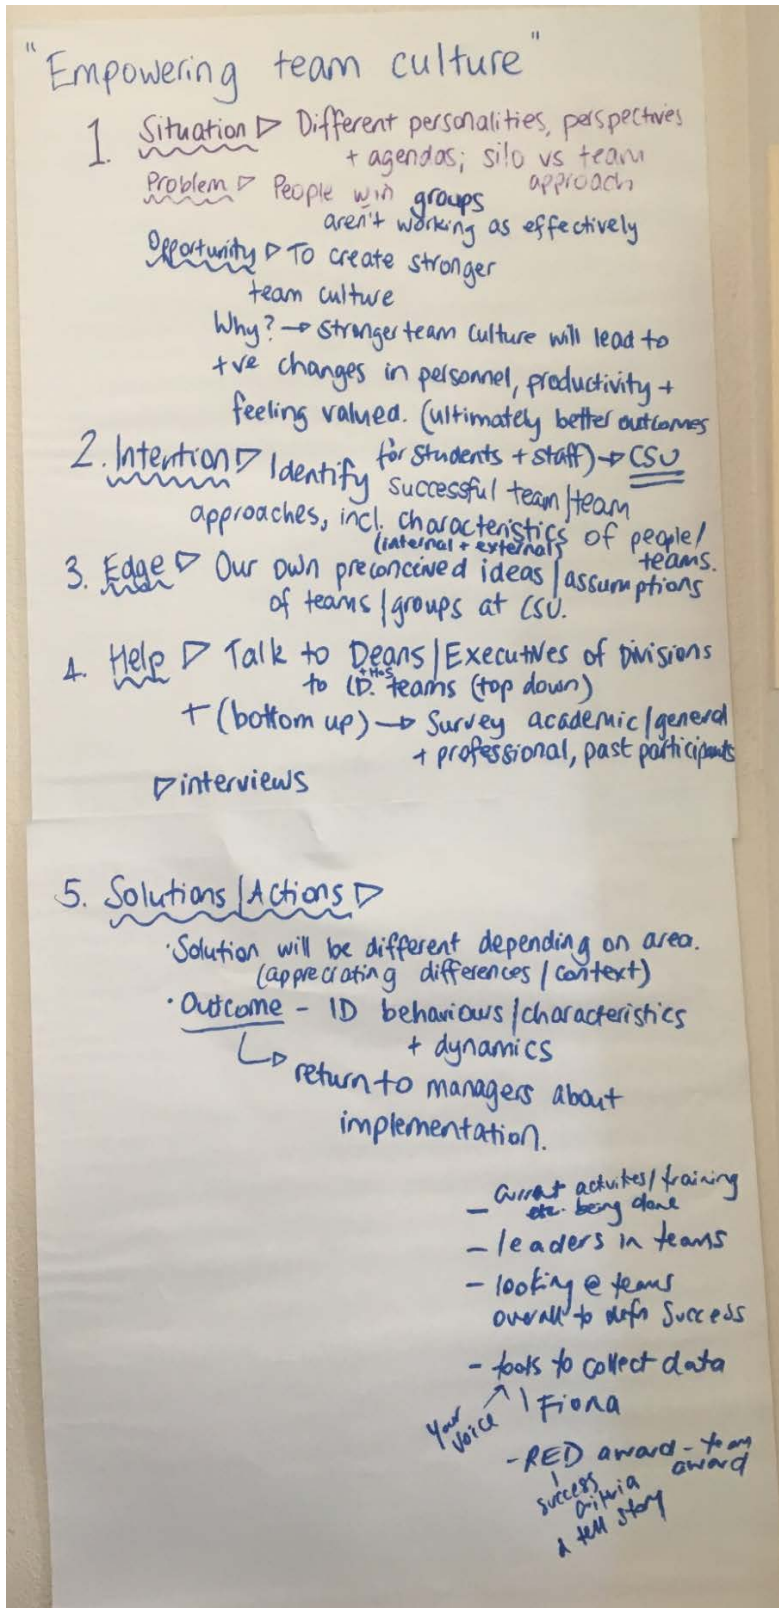 "Empowering team culture"
1. Situation ▷ Different personalities, perspectives
+ agendas; silo vs team
approach
Problem ▷ People win groups
aren't working as effectively
Opportunity ▷ To create stronger
team culture
Why? → stronger team culture will lead to
+ve changes in personnel, productivity +
feeling valued. (ultimately better outcomes
for students + staff) → CSU
2. Intention ▷ Identify successful team/team
approaches, incl. characteristics of people/
teams.
(internal + external)
3. Edge ▷ Our own preconceived ideas/assumptions
of teams/groups at CSU.
4. Help ▷ Talk to Deans/Executives of Divisions
+ HoS
to ID. teams (top down)
+ (bottom up) → Survey academic/general
+ professional, past participants
▷ interviews
5. Solutions/Actions ▷
· Solution will be different depending on area.
(appreciating differences/context)
· Outcome - ID behaviours/characteristics
+ dynamics
↳ return to managers about
implementation.
- current activites/training
etc. being done
- leaders in teams
- looking @ teams
overall to defn success
- tools to collect data
Your voice
Fiona
- RED award - team
award
success
criteria
& tell story